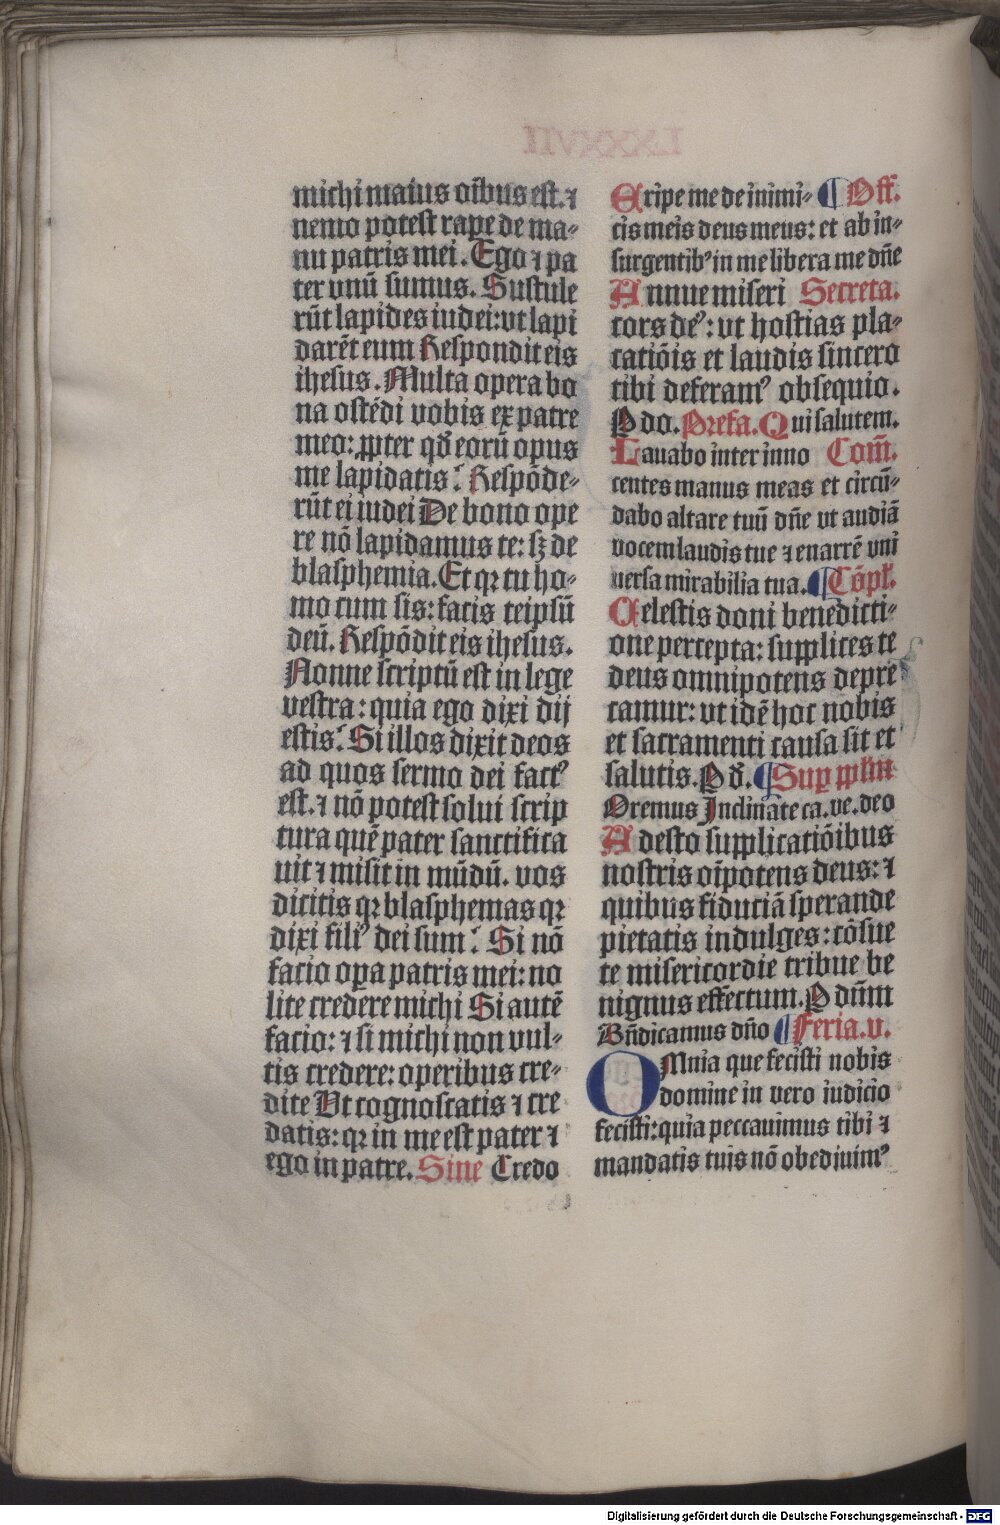 michi maius oībus est. ⁊
nemo potest rapꝑe de ma-
nu patris mei. Ego ⁊ pa
ter vnū sumus. Sustule
rūt lapides iudei: vt lapi
darēt eum Respondit eis
ihesus. Multa opera bo
na ostēdi vobis ex patre
meo: ꝓpter qđ eorū opus
me lapidatis? Respōde-
rūt ei iudei De bono ope
re nō lapidamus te: sꝫ de
blasphemia. Et qꝛ tu ho-
mo cum sis: facis teipsū
deū. Respōdit eis ihesus.
Nonne scriptū est in lege
vestra: quia ego dixi dij
estis? Si illos dixit deos
ad quos sermo dei factꝰ
est. ⁊ nō potest solui scrip
tura quē pater sanctifica
uit ⁊ misit in mūdū. vos
dicitis qꝛ blasphemas qꝛ
dixi filiꝰ dei sum? Si nō
facio oꝑa patris mei: no
lite credere michi Si autē
facio: ⁊ si michi non vul-
tis credere: operibus cre-
dite Vt cognoscatis ⁊ cre
datis: qꝛ in me est pater ⁊
ego in patre. Sine Credo
Eripe me de inimi- ¶ Off.
cis meis deus meus: et ab in-
surgentibꝰ in me libera me dn̄e
Annue miseri Secreta.
cors deꝰ: vt hostias pla-
catiōis et laudis sincero
tibi deferamꝰ obsequio.
P do. Prefa. Qui salutem.
Lauabo inter inno Com̄.
centes manus meas et circū-
dabo altare tuū dn̄e vt audiā
vocem laudis tue ⁊ enarrē vni
uersa mirabilia tua. ¶ Cōpl.
Celestis doni benedicti-
one percepta: supplices te
deus omnipotens depre
camur: vt idē hoc nobis
et sacramenti causa sit et
salutis. P d. ¶ Suꝑ pplm
Oremus Inclinate ca. ve. deo
Adesto supplicatiōibus
nostris oīpotens deus: ⁊
quibus fiduciā sperande
pietatis indulges: cōsue
te misericordie tribue be
nignus effectum. P dūm
Bn̄dicamus dn̄o ¶ Feria. v.
OMnia que fecisti nobis
domine in vero iudicio
fecisti: quia peccauimus tibi ⁊
mandatis tuis nō obediuimꝰ
LXXXVII
Digitalisierung gefördert durch die Deutsche Forschungsgemeinschaft - DFG